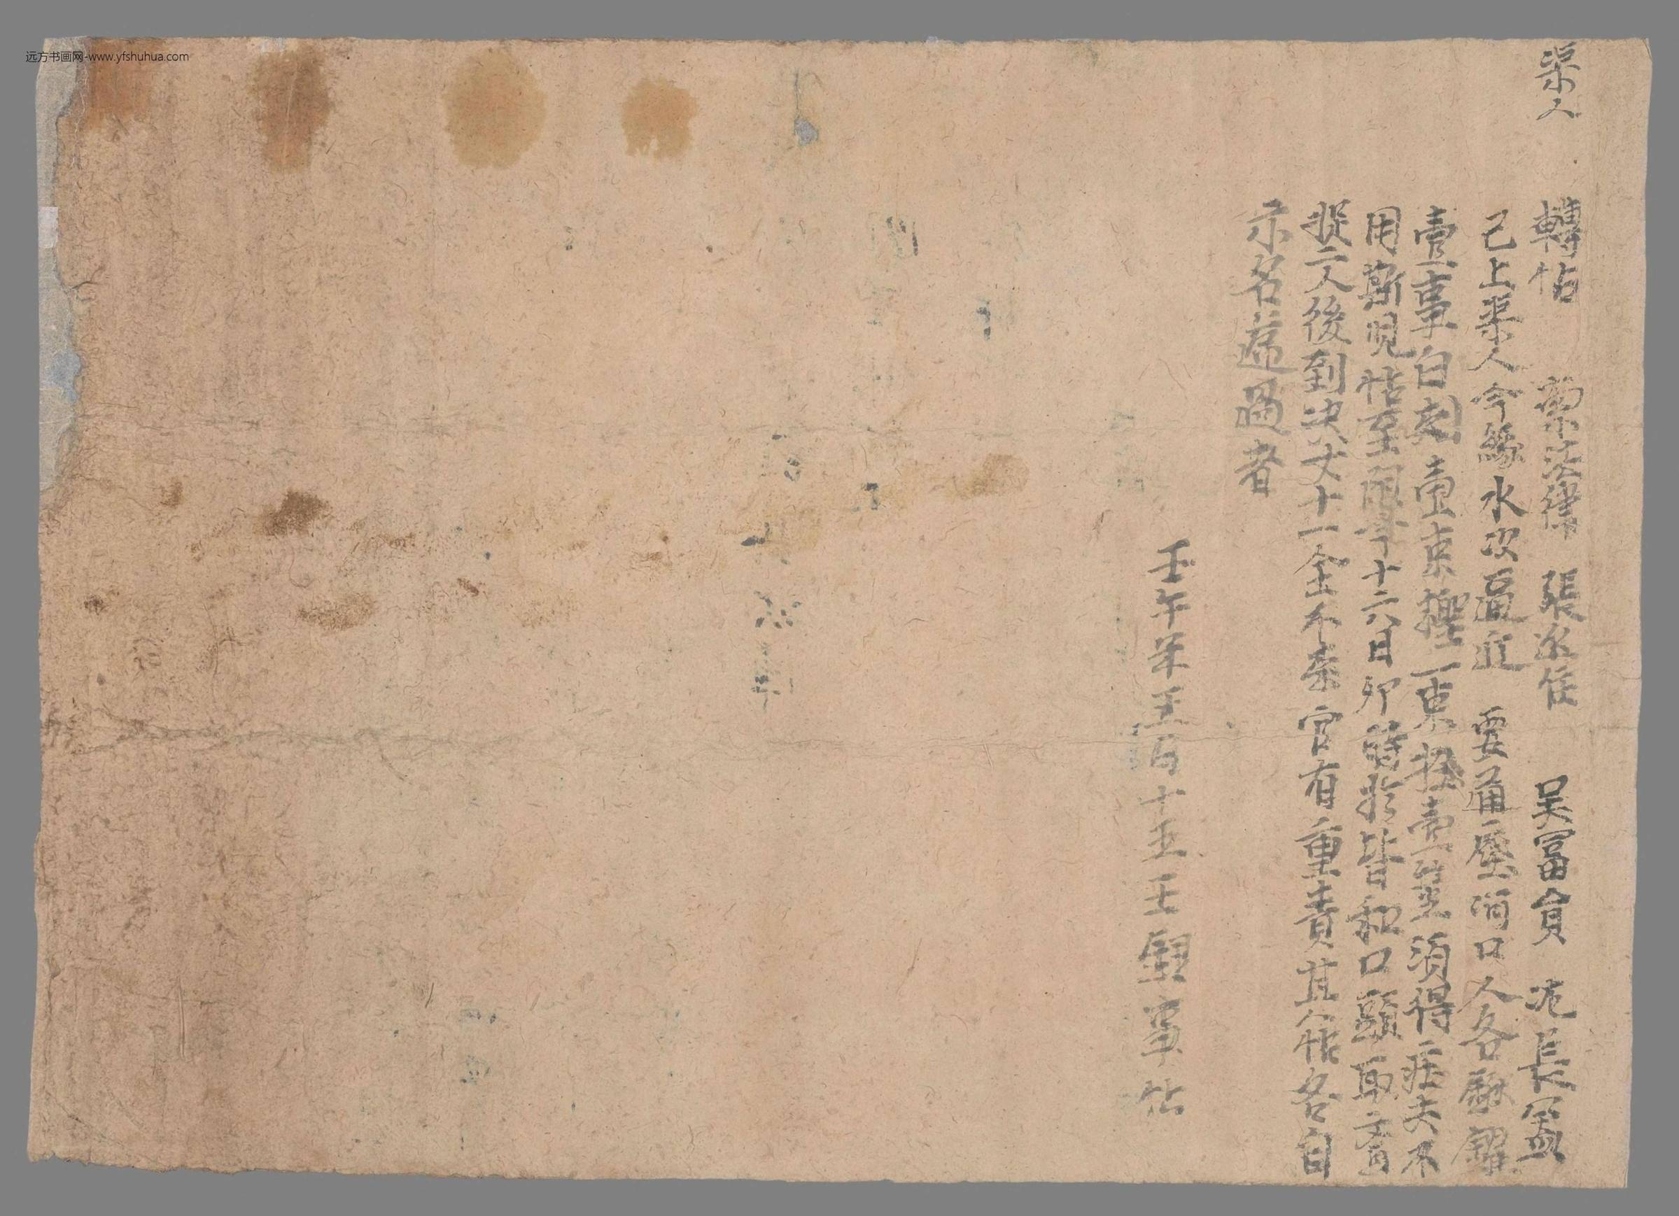 远方书画网-www.yfshuhua.com
渠人 轉帖 索法律 張 住 吳富員 氾長盈
已上渠人今緣水次逼近 要通底河口人各鍬鑺
壹事白刺壹束檉一束 壹莖須得莊夫不
用斯兒帖至限今十六日卯時於皆和口頭取齊
捉二人後到決丈十一全不來官有重責其帖各自
示名遞過者
壬午年五月十五王 事帖